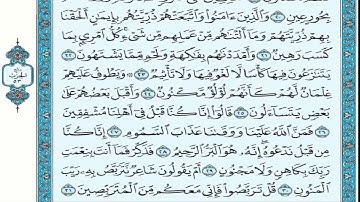 بِحُورٍ عِينٍ ٢٠ وَالَّذِينَ ءَامَنُوا وَاتَّبَعَتْهُمْ ذُرِّيَّتُهُم بِإِيمَٰنٍ أَلْحَقْنَا
بِهِمْ ذُرِّيَّتَهُمْ وَمَا أَلَتْنَٰهُم مِّنْ عَمَلِهِم مِّن شَىْءٍ كُلُّ امْرِئٍ بِمَا
كَسَبَ رَهِينٌ ٢١ وَأَمْدَدْنَٰهُم بِفَٰكِهَةٍ وَلَحْمٍ مِّمَّا يَشْتَهُونَ ٢٢
يَتَنَٰزَعُونَ فِيهَا كَأْسًا لَّا لَغْوٌ فِيهَا وَلَا تَأْثِيمٌ ٢٣ وَيَطُوفُ عَلَيْهِمْ
غِلْمَانٌ لَّهُمْ كَأَنَّهُمْ لُؤْلُؤٌ مَّكْنُونٌ ٢٤ وَأَقْبَلَ بَعْضُهُمْ عَلَىٰ
بَعْضٍ يَتَسَاءَلُونَ ٢٥ قَالُوا إِنَّا كُنَّا قَبْلُ فِي أَهْلِنَا مُشْفِقِينَ
٢٦ فَمَنَّ اللَّهُ عَلَيْنَا وَوَقَىٰنَا عَذَابَ السَّمُومِ ٢٧ إِنَّا كُنَّا
مِن قَبْلُ نَدْعُوهُ إِنَّهُ هُوَ الْبَرُّ الرَّحِيمُ ٢٨ فَذَكِّرْ فَمَا أَنتَ بِنِعْمَتِ
رَبِّكَ بِكَاهِنٍ وَلَا مَجْنُونٍ ٢٩ أَمْ يَقُولُونَ شَاعِرٌ نَّتَرَبَّصُ بِهِ رَيْبَ
الْمَنُونِ ٣٠ قُلْ تَرَبَّصُوا فَإِنِّي مَعَكُم مِّنَ الْمُتَرَبِّصِينَ ٣١